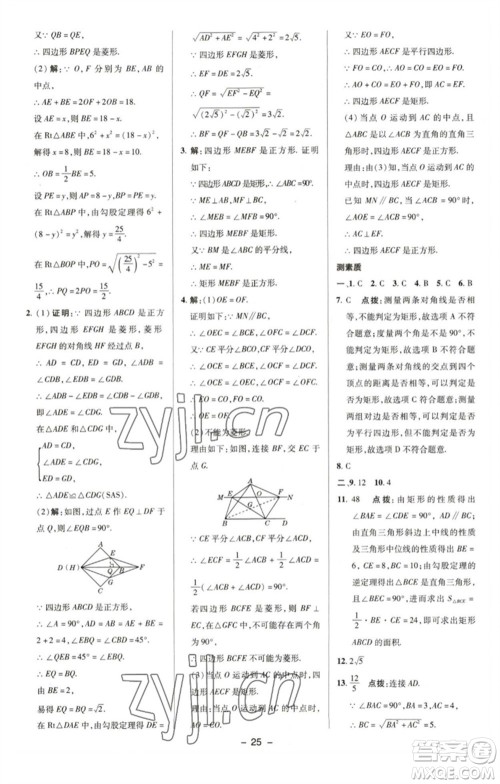 又∵QB=QE,
∴四边形 BPEQ 是菱形.
(2)解:∵O,F 分别是 BE,AB 的
中点,
∴AE+BE=2OF+2OB=18.
设 AE=x,则 BE=18-x,
在 Rt△ABE 中,6²+x²=(18-x)²,
∴OB=1/2 BE=5.
设 PE=y,则 AP=8-y,BP=PE=y,
在 Rt△ABP 中,由勾股定理得 6²+
(8-y)²=y²,解得 y=25/4.
在 Rt△BOP 中,PO=√((25/4)²-5²)=
15/4,∴PQ=2PO=15/2.
2. (1)证明:∵四边形 ABCD 是正方
形,四边形 EFGH 是菱形,菱形
EFGH 的对角线 HF 经过点 B,
∴AD=CD,ED=GD,∠ADB=
∠CDB,∠EDB=∠GDB.
∴∠ADE=∠CDG.
在△ADE 和△CDG 中,
AD=CD,
∠ADE=∠CDG,
ED=GD,
∴△ADE≌△CDG(SAS).
(2)解:过点 E 作 EQ⊥DF 于点 Q,
则∠EQB=90°.
D(H) A E B F G C
∵四边形 ABCD 是正方形,
∴∠A=90°,AD=AB=AE+BE=
2+2=4,∠EBQ=∠CBD=45°.
∴∠QEB=45°=∠EBQ.
∴EQ=BQ.
∵BE=2,
∴易得 EQ=BQ=√2.
在 Rt△DAE 中,由勾股定理得 DE=
√(AD²+AE²)=2√5.
∵四边形 EFGH 是菱形,
∴EF=DE=2√5.
∴QF=√(EF²-EQ²)=
√((2√5)²-(√2)²)=3√2.
∴BF=QF-QB=3√2-√2=2√2.
3. 解:四边形 MEBF 是正方形.证明
如下:
∵四边形 ABCD 是矩形,∴∠ABC=90°.
又∵ME⊥AB,MF⊥BC,
∴∠MEB=∠MFB=90°.
∴四边形 MEBF 是矩形.
又∵BM 是∠ABC 的平分线,
∴ME=MF.
∴四边形 MEBF 是正方形.
4. 解:(1)OE=OF.
证明如下:∵MN∥BC,
∴∠OEC=∠ECB,∠OFC=∠FCG.
又∵CE 平分∠ACB,CF 平分∠ACG,
∴∠OCE=∠BCE,∠OCF=∠FCG.
∴∠OCE=∠OEC,∠OCF=∠OFC.
∴EO=CO,FO=CO.
∴EO=FO.
(2)不可能为菱形.
理由如下:如图,连接 BF,交 EC 于
点 H.
∵CE 平分∠ACB,CF 平分∠ACG,
∴∠ECF=1/2∠ACB+1/2∠ACG=
1/2(∠ACB+∠ACG)=1/2×180°=
90°.
若四边形 BCFE 是菱形,则 BF⊥EC.
但在△GFC 中,不可能存在两个角
为 90°,故四边形 BCFE 不可能为
菱形.
∴四边形 BCFE 不可能为菱形.
(3)当点 O 运动到 AC 的中点时,
四边形 AECF 是矩形.
理由:∵当点 O 运动到 AC 的中点
时,AO=CO,EO=FO,
∴四边形 AECF 是平行四边形.
∵FO=CO,∴AO=CO=EO=FO.
∴AO+CO=EO+FO,即 AC=EF.
∴四边形 AECF 是矩形.
(4)当点 O 运动到 AC 的中点,且
△ABC 是以∠ACB 为直角的直角
三角形时,四边形 AECF 是正方形.
理由:由(3)知,当点 O 运动到 AC
的中点时,四边形 AECF 是矩形.
已知 MN∥BC,当∠ACB=90°时,
∠AOE=90°,
∴AC⊥EF.
∴四边形 AECF 是正方形.
测素质
一、1. C 2. C 3. C 4. B 5. B 6. C
7. C 点拨:测量两对角线是否相
等,不能判定为矩形,故选项 A 不符
合题意;度量两个角是否是 90°,不
能判定为矩形,故选项 B 不符合题
意;测量两条对角线的交点到四个
顶点的距离是否相等,可以判定为
矩形,故选项 C 符合题意;测量
两组对边是否分别相等,不能判定
为矩形,故选项 D 不符合题意.
8. C
二、9. 12 10. 4
11. 48 点拨:由矩形的性质得出
∠BAE=∠ADC=90°,由勾股定理
及直角三角形斜边上的中线的性质
及三角形中位线的性质得出 BE=
6,CE=8,BC=10,由勾股定理的
逆定理得出△BCE 是直角三角形,
∠BEC=90°,进而可求 S△BCE=
1/2·BE·CE=24,即可求出矩形
ABCD 的面积.
12. 2√5
13. 12/5 点拨:连接 AD.
∵∠BAC=90°,BA=3,AC=4,
∴BC=√(BA²+AC²)=5.
- 25 -
zyjl.cn
zyjl.cn
答案圈
MXQE.COM